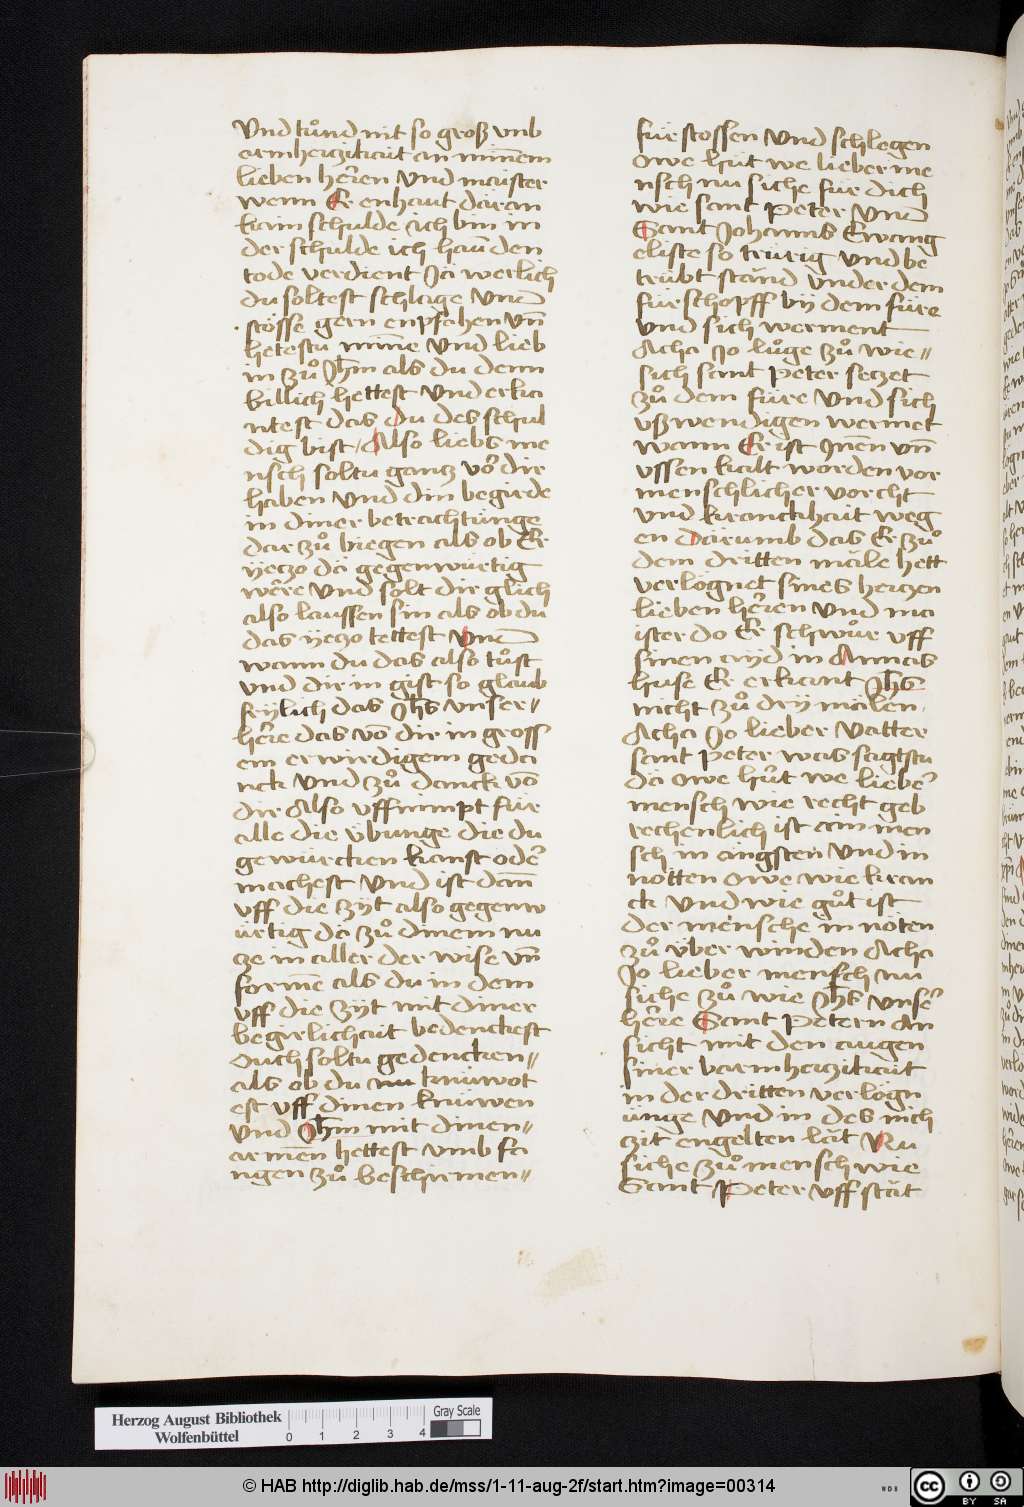 Vnd tůnd nit so groß vnb
armherczikait an minem
lieben heren Vnd maister
wenn Er enhaut daran
kain schulde ich bin in
der schulde ich han den
tode verdient Ja werlich
du soltest schlage Vnd
stösse gern enpfahen Vn̄
hetestu minne Vnd lieb
in zů Jhm als du denn
billich hettest Vnd erka
ntest das du des schul
dig bist / Also liebs me
nsch soltu gantz vor dir
haben Vnd din begirde
in diner betrachtunge
dar zů biegen als ob Er
yeczo da gegenwürtig
were Vnd solt dir glich
also laussen sin als ob du
das yeczo tettest Vnd
wann du das also tůst
Vnd dir in gist so glaub
frylich das Jhs vnser"
here das vō dir in gross
em erwirdigem geda
nck Vnd zů danck vō
dir Also vffnimpt für
alle die übunge die du
gewürcken kanst oder
machest Vnd ist dān
vff die zyt also gegenw
ürtig da zů dinem nu
cze in aller der wise vn̄
forme als du in dem
vff die zyt mit diner
begirlichait bedenckest
Ouch soltu gedencken"
als ob du nu knüwot
est vff dinen knüwen
Vnd Jhm mit dinen"
armen hettest vmb fa
ngen zů beschirmen"
für stossen Vnd schlegen
Owe hüt we lieber me
nsch nu siche für dich
wie sant Peter Vnd
Sant Johanns Ewang
eliste so trurig Vnd be
trübt stand vnder dem
fürschopff by dem füre
Vnd sich werment
Acha Jo lůge zů wie"
sich sant Peter seczet
zů dem füre Vnd sich
vßwendigen wermet
wann Er ist Jnen vn̄
vssen kalt worden vor
menschlicher vorcht
Vnd kranckhait weg
en darumb das Er zů
dem dritten male hett
verlögnet sines herczen
lieben heren Vnd ma
ister do Er schwůr vff
sinen ayd in Annas
huse Er erkant Jhs
nicht zů dry malen
Acha Jo lieber Vatter
sant Peter was sagtstu
da owe hüt we lieber
mensch wie recht geb
rechenlich ist ain men
sch in angsten Vnd in
nötten Owe wie kran
ck Vnd wie gůt ist
der mensche in nöten
zů über winden Acha
Jo lieber mensch nu
siche zů wie Jhs vnser
here Sant Petern an
sicht mit den augen
siner barmherczikait
in der dritten verlögn
unge Vnd in des nich
czit engelten lat Nu
siche zů mensch wie
Sant Peter vff stat
Herzog August Bibliothek
Wolfenbüttel
0 1 2 3 4
Gray Scale
© HAB http://diglib.hab.de/mss/1-11-aug-2f/start.htm?image=00314
WDB
cc
BY SA